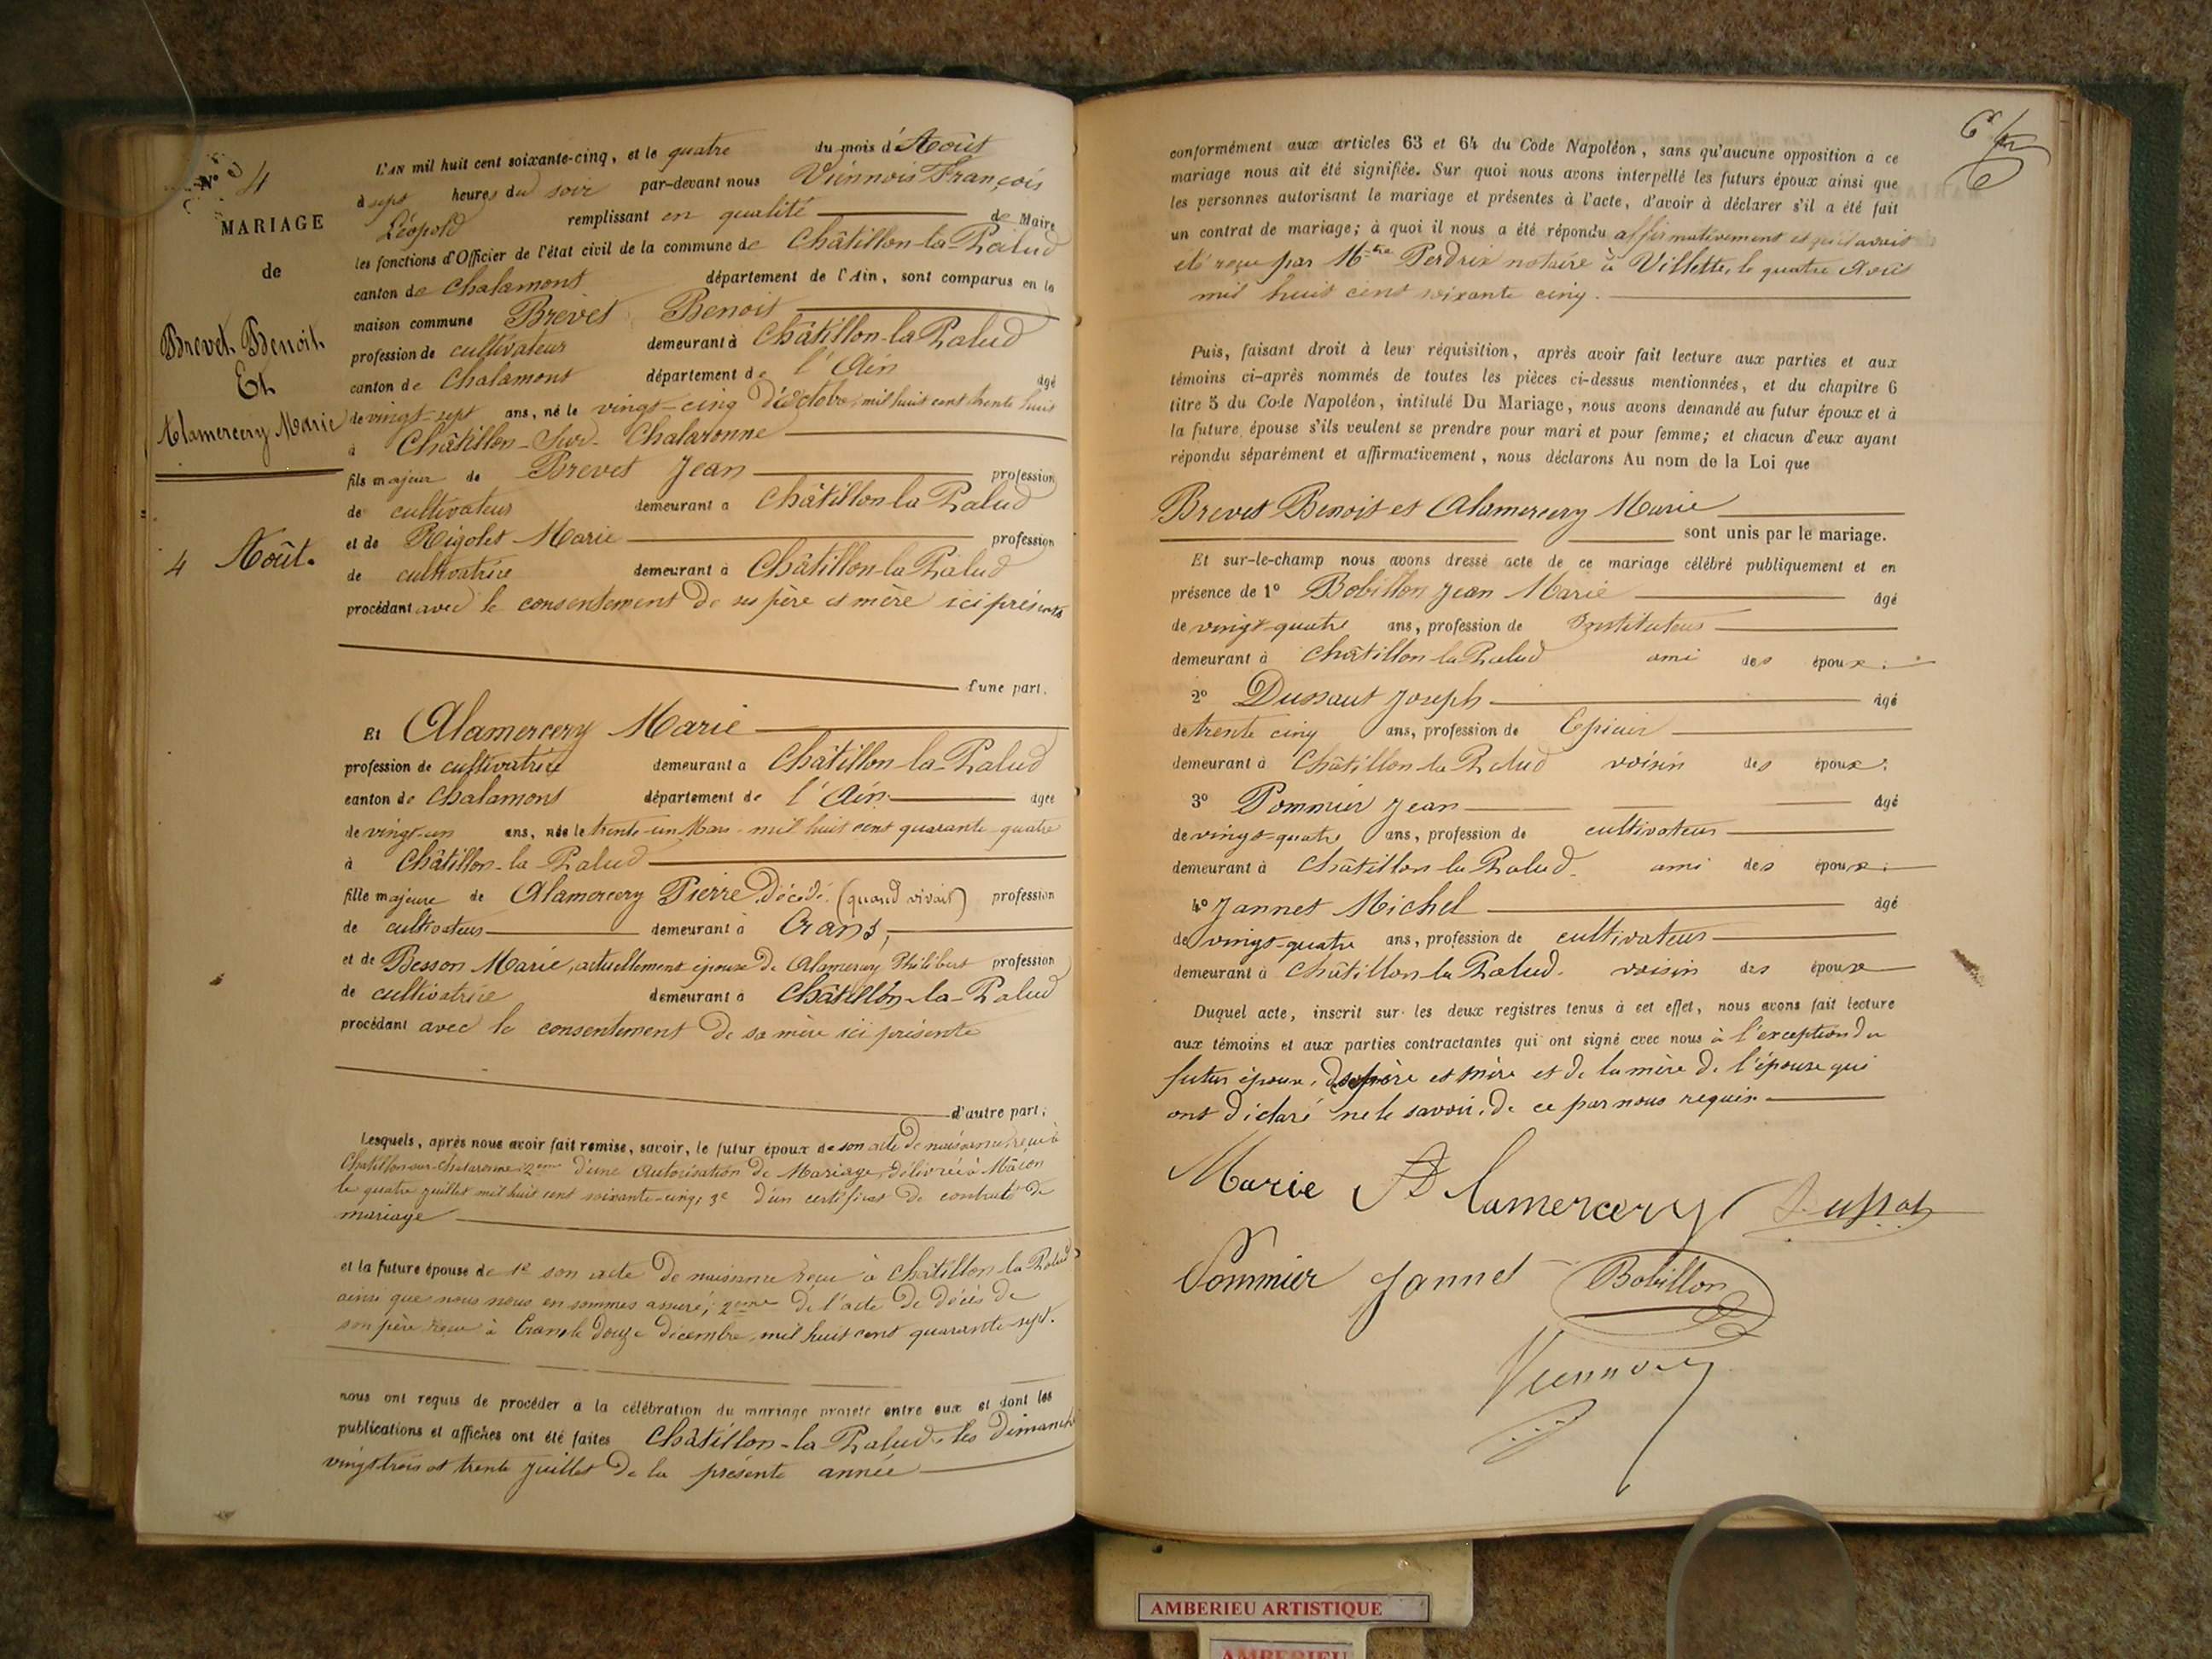 N° 4
MARIAGE
de
Brevet Benoit
Et
Alamercery Marie
4 Août.
L'AN mil huit cent soixante-cinq, et le quatre du mois d'Août
à sept heures du soir par-devant nous Viennois François
Léopold remplissant en qualité de Maire
les fonctions d'Officier de l'état civil de la commune de Châtillon-la-Palud
canton de Chalamont département de l'Ain, sont comparus en la
maison commune Brevet Benoit
profession de cultivateur demeurant à Châtillon-la Palud
canton de Chalamont département de l'Ain âgé
de vingt-sept ans, né le vingt-cinq d'octobre mil huit cent trente huit
à Châtillon-Sur-Chalaronne
fils majeur de Brevet Jean profession
de cultivateur demeurant à Châtillon-la Palud
et de Rigolet Marie profession
de cultivatrice demeurant à Châtillon-la Palud
procédant avec le consentement de ses père et mère ici présents
d'une part.
Et Alamercery Marie
profession de cultivatrice demeurant à Châtillon-la-Palud
canton de Chalamont département de l'Ain âgée
de vingt-un ans, née le trente-un Mars mil huit cent quarante-quatre
à Châtillon-la-Palud
fille majeure de Alamercery Pierre, décédé (quand vivait) profession
de cultivateur demeurant à Crans,
et de Besson Marie, actuellement épouse de Alamercery Philibert profession
de cultivatrice demeurant à Châtillon-la-Palud
procédant avec le consentement de sa mère ici présente
d'autre part;
Lesquels, après nous avoir fait remise, savoir, le futur époux de son acte de naissance reçu à
Châtillon-sur-Chalaronne 2eme d'une Autorisation de Mariage, délivrée à Mâcon
le quatre juillet mil huit cent soixante-cinq, 3e d'un certificat de contrat de
mariage
et la future épouse de 1e son acte de naissance reçu à Châtillon-la Palud
ainsi que nous nous en sommes assuré; 2eme de l'acte de décès de
son père reçu à Crans le douze décembre mil huit cent quarante-sept.
nous ont requis de procéder à la célébration du mariage projeté entre eux et dont les
publications et affiches ont été faites Châtillon-la-Palud, les Dimanche
vingt trois et trente juillet de la présente année
conformément aux articles 63 et 64 du Code Napoléon, sans qu'aucune opposition à ce
mariage nous ait été signifiée. Sur quoi nous avons interpellé les futurs époux ainsi que
les personnes autorisant le mariage et présentes à l'acte, d'avoir à déclarer s'il a été fait
un contrat de mariage; à quoi il nous a été répondu affirmativement et qu'il avait
été reçu par Mtre Perdrix notaire à Villette, le quatre Août
mil huit cent soixante cinq.
Puis, faisant droit à leur réquisition, après avoir fait lecture aux parties et aux
témoins ci-après nommés de toutes les pièces ci-dessus mentionnées, et du chapitre 6
titre 5 du Code Napoléon, intitulé Du Mariage, nous avons demandé au futur époux et à
la future épouse s'ils veulent se prendre pour mari et pour femme; et chacun d'eux ayant
répondu séparément et affirmativement, nous déclarons Au nom de la Loi que
Brevet Benoit et Alamercery Marie
sont unis par le mariage.
Et sur-le-champ nous avons dressé acte de ce mariage célébré publiquement et en
présence de 1° Bobillon Jean Marie âgé
de vingt-quatre ans, profession de Instituteur
demeurant à Châtillon-la Palud ami des époux.
2° Dussaut Joseph âgé
de trente cinq ans, profession de Epicier
demeurant à Châtillon-la Palud voisin des époux.
3° Pommier Jean âgé
de vingt-quatre ans, profession de cultivateur
demeurant à Châtillon-la Palud. ami des époux.
4° Jannet Michel âgé
de vingt-quatre ans, profession de cultivateur
demeurant à Châtillon-la Palud. voisin des époux
Duquel acte, inscrit sur les deux registres tenus à cet effet, nous avons fait lecture
aux témoins et aux parties contractantes qui ont signé avec nous à l'exception du
futur époux, de ses père et mère et de la mère de l'épouse qui
ont déclaré ne le savoir, de ce par nous requis
Marie Alamercery
Pommier Jannet Bobillon
AMBERIEU ARTISTIQUE
AMBERIEU